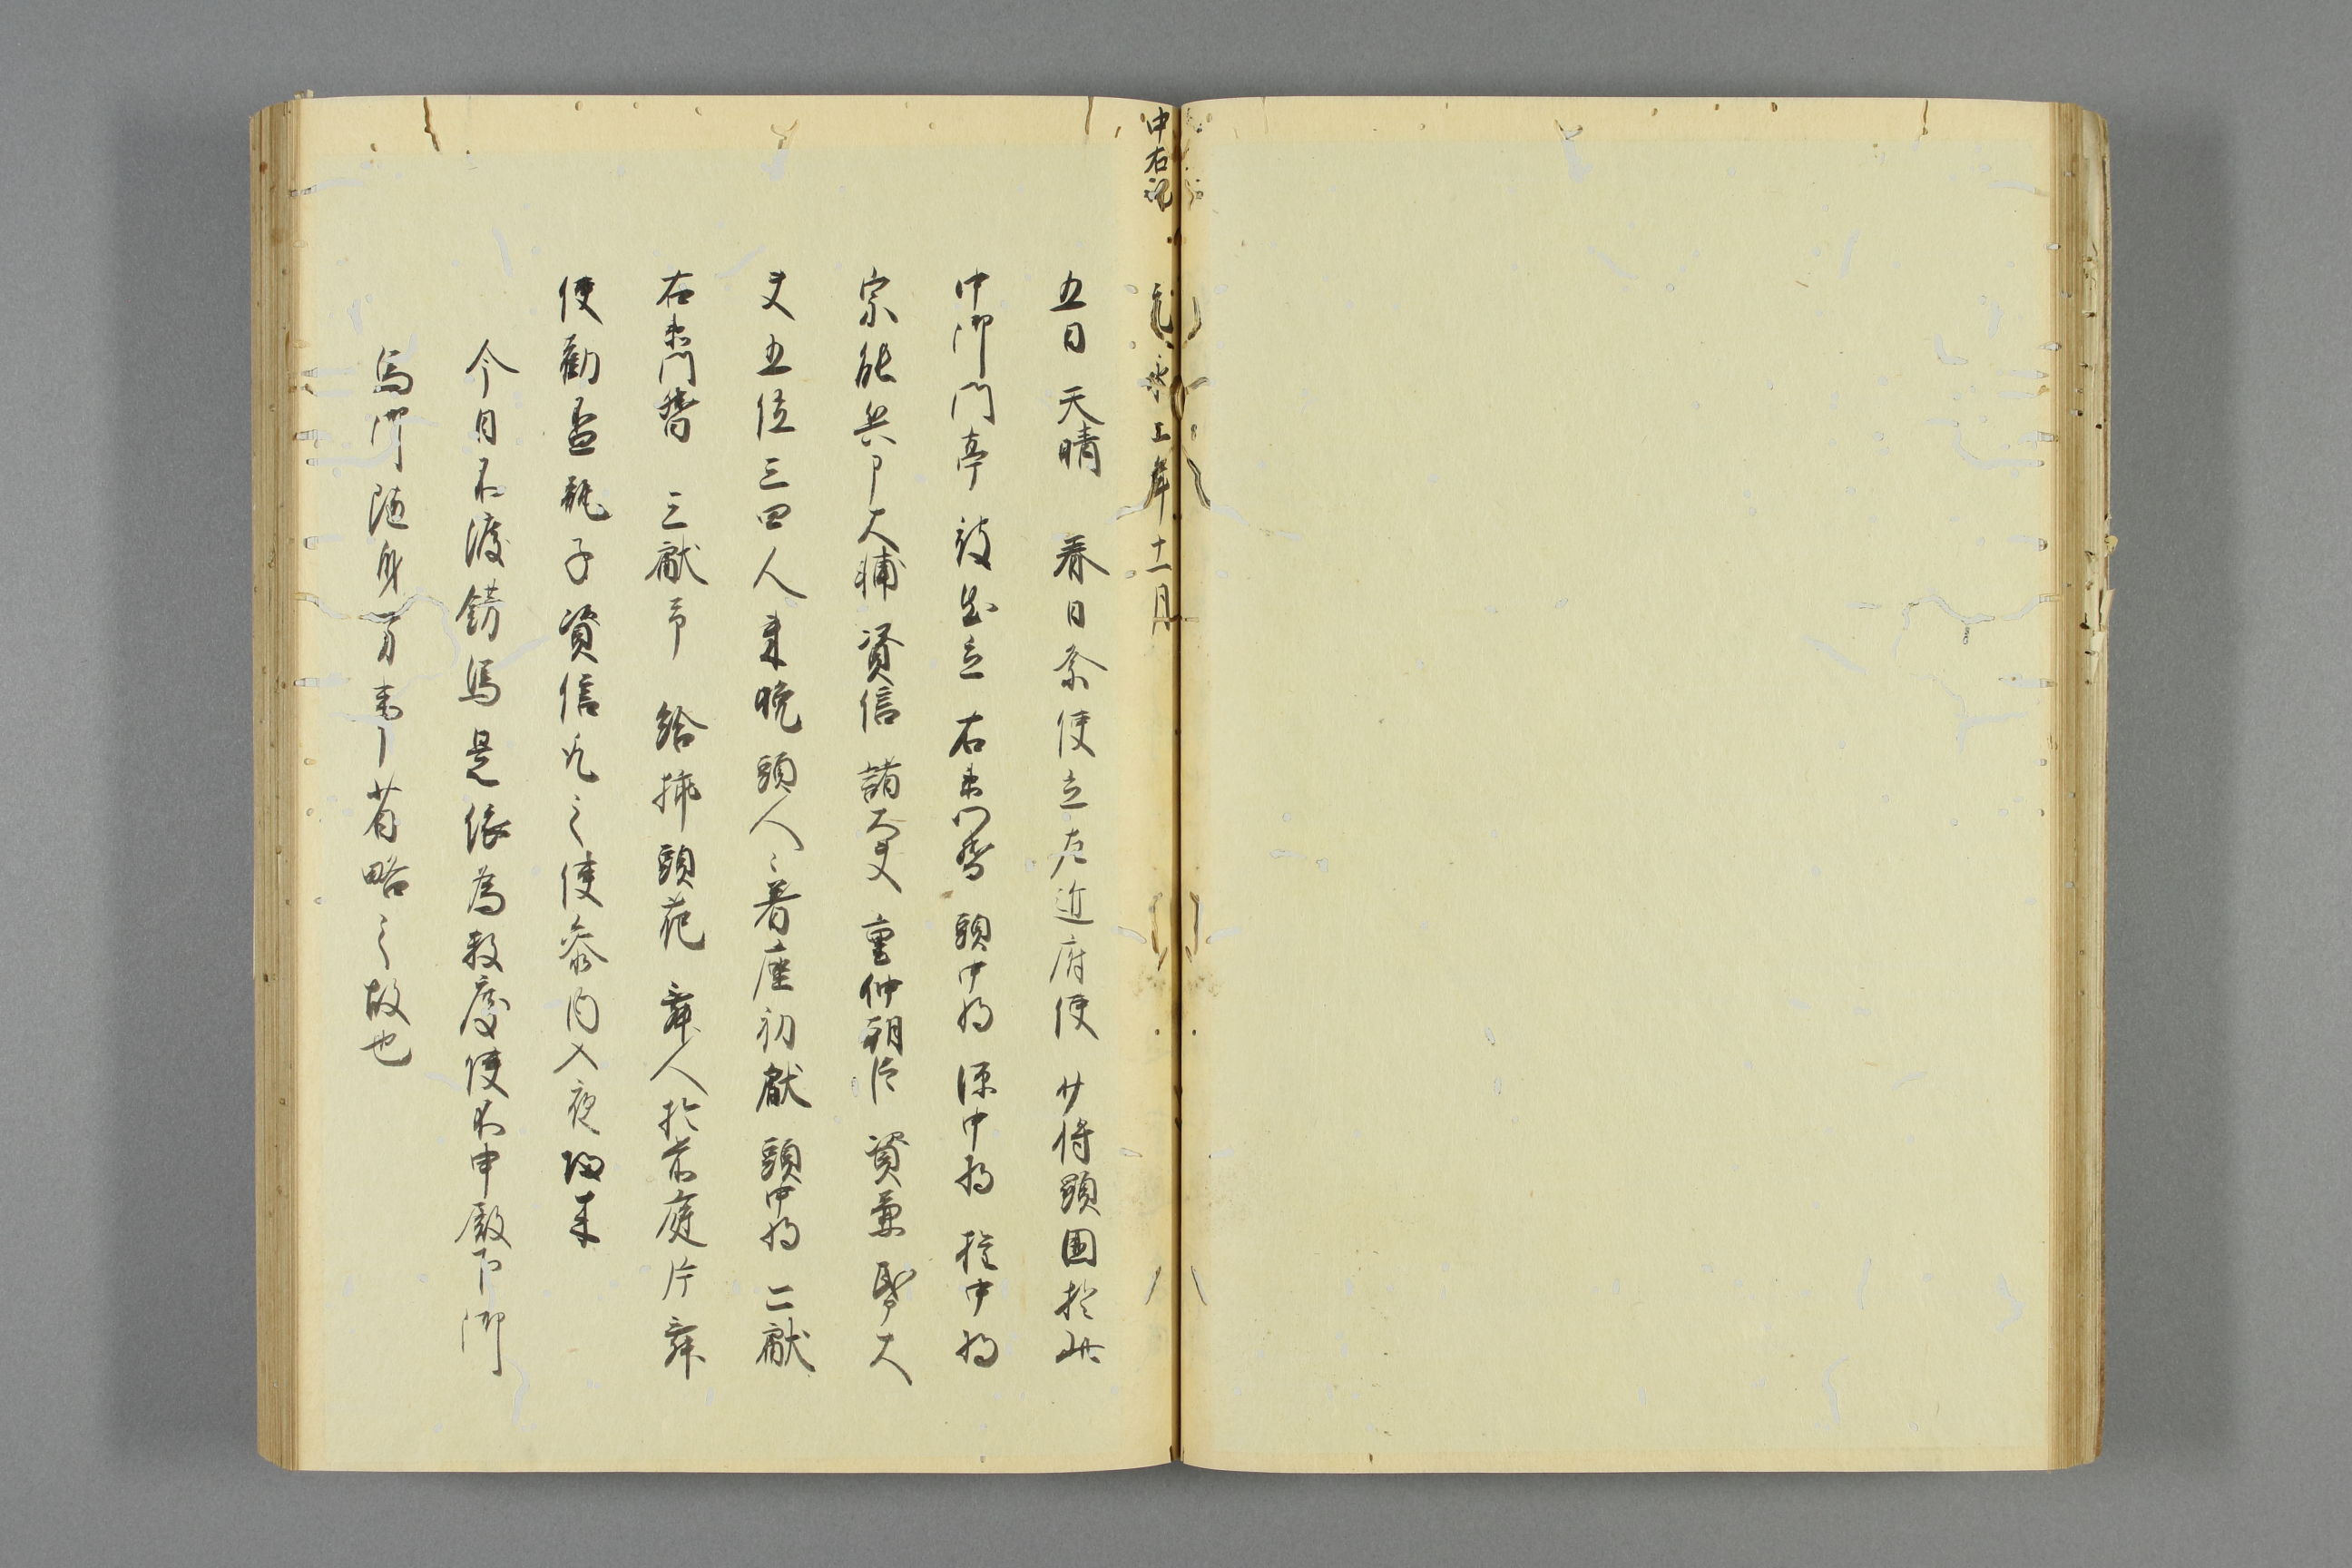 中右記 元永二年十一月
五日 天晴 春日祭使立左近府使 少将顕国於此
中御門亭被出立 右衛門督 頭中将 源中将 権中将
宗能 兵部大輔 資信 諸大夫 重仲朝臣 資兼 昏大
夫 五位三四人来 晩頭人々着座 初献 頭中将 二献
右衛門督 三献予 給挿頭花 舞人於前庭片舞
使勧盃瓶子資信九之 使参内 入夜帰来
今日不渡錺馬 是依為数度使不申殿下御
馬御随身 万事省略之故也